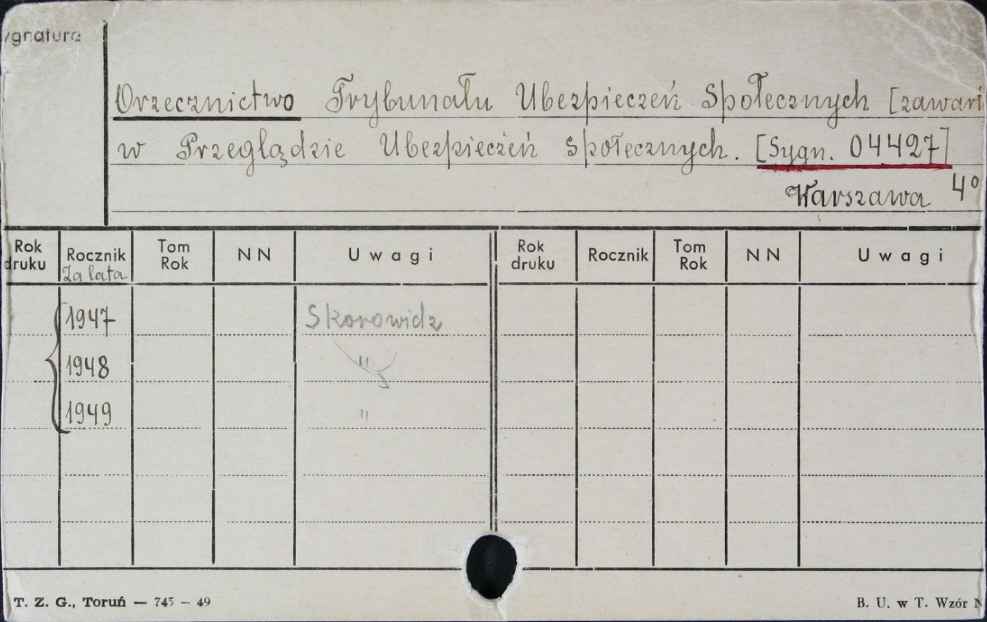 ygnatura
Orzecznictwo Trybunału Ubezpieczeń Społecznych [zawart
w Przeglądzie Ubezpieczeń Społecznych. [Sygn. 04427]
Warszawa 4°
Rok druku Rocznik Za lata Tom Rok NN Uwagi Rok druku Rocznik Tom Rok NN Uwagi
1947 Skorowidz
1948 "
1949 "
T. Z. G., Toruń — 745 — 49 B. U. w T. Wzór N